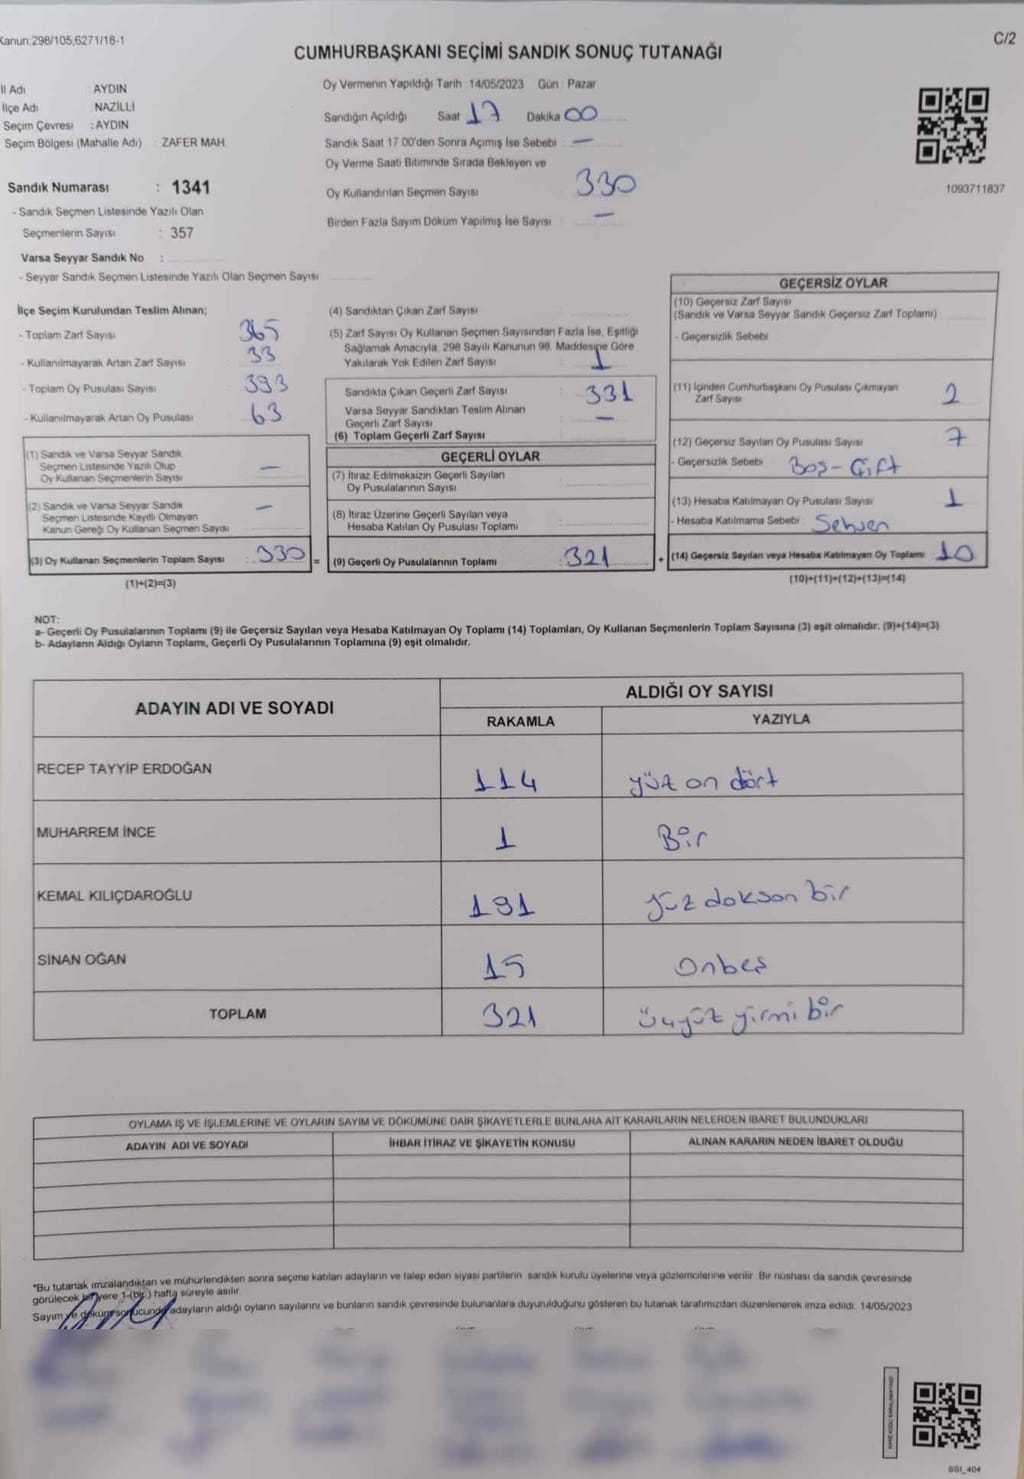 Kanun,298/105,6271/18-1
C/2
CUMHURBAŞKANI SEÇİMİ SANDIK SONUÇ TUTANAĞI
İl Adı : AYDIN
İlçe Adı NAZİLLİ
Seçim Çevresi : AYDIN
Seçim Bölgesi (Mahalle Adı) : ZAFER MAH.
Oy Vermenin Yapıldığı Tarih : 14/05/2023 Gün : Pazar
Sandığın Açıldığı Saat 17 Dakika 00
Sandık Saat 17.00'den Sonra Açımış İse Sebebi —
Oy Verme Saati Bitiminde Sırada Bekleyen ve
Oy Kullandırılan Seçmen Sayısı 330
Birden Fazla Sayım Döküm Yapılmış İse Sayısı —
1093711837
Sandık Numarası : 1341
- Sandık Seçmen Listesinde Yazılı Olan
Seçmenlerin Sayısı : 357
Varsa Seyyar Sandık No :
- Seyyar Sandık Seçmen Listesinde Yazılı Olan Seçmen Sayısı
İlçe Seçim Kurulundan Teslim Alınan;
- Toplam Zarf Sayısı 365
- Kullanılmayarak Artan Zarf Sayısı 33
- Toplam Oy Pusulası Sayısı 393
- Kullanılmayarak Artan Oy Pusulası 63
(1) Sandık ve Varsa Seyyar Sandık
Seçmen Listesinde Yazılı Olup
Oy Kullanan Seçmenlerin Sayısı —
(2) Sandık ve Varsa Seyyar Sandık
Seçmen Listesinde Kayıtlı Olmayan
Kanun Gereği Oy Kullanan Seçmen Sayısı —
(3) Oy Kullanan Seçmenlerin Toplam Sayısı : 330
(1)+(2)=(3)
(4) Sandıktan Çıkan Zarf Sayısı
(5) Zarf Sayısı Oy Kullanan Seçmen Sayısından Fazla İse, Eşitliği
Sağlamak Amacıyla, 298 Sayılı Kanunun 98. Maddesine Göre
Yakılarak Yok Edilen Zarf Sayısı 1
Sandıkta Çıkan Geçerli Zarf Sayısı 331
Varsa Seyyar Sandıktan Teslim Alınan
Geçerli Zarf Sayısı —
(6) Toplam Geçerli Zarf Sayısı
GEÇERLİ OYLAR
(7) İtiraz Edilmeksizin Geçerli Sayılan
Oy Pusulalarının Sayısı
(8) İtiraz Üzerine Geçerli Sayılan veya
Hesaba Katılan Oy Pusulası Toplamı
= (9) Geçerli Oy Pusulalarının Toplamı : 321
GEÇERSİZ OYLAR
(10) Geçersiz Zarf Sayısı
(Sandık ve Varsa Seyyar Sandık Geçersiz Zarf Toplamı)
- Geçersizlik Sebebi
(11) İçinden Cumhurbaşkanı Oy Pusulası Çıkmayan
Zarf Sayısı 2
(12) Geçersiz Sayılan Oy Pusulası Sayısı 7
- Geçersizlik Sebebi Boş - Çift
(13) Hesaba Katılmayan Oy Pusulası Sayısı 1
- Hesaba Katılmama Sebebi : Sehven
+ (14) Geçersiz Sayılan veya Hesaba Katılmayan Oy Toplamı 10
(10)+(11)+(12)+(13)=(14)
NOT:
a- Geçerli Oy Pusulalarının Toplamı (9) ile Geçersiz Sayılan veya Hesaba Katılmayan Oy Toplamı (14) Toplamları, Oy Kullanan Seçmenlerin Toplam Sayısına (3) eşit olmalıdır. (9)+(14)=(3)
b- Adayların Aldığı Oyların Toplamı, Geçerli Oy Pusulalarının Toplamına (9) eşit olmalıdır.
ADAYIN ADI VE SOYADI ALDIĞI OY SAYISI
RAKAMLA YAZIYLA
RECEP TAYYİP ERDOĞAN 114 yüz on dört
MUHARREM İNCE 1 Bir
KEMAL KILIÇDAROĞLU 191 yüz dokson bir
SİNAN OĞAN 15 Onbeş
TOPLAM 321 üçyüz yirmi bir
OYLAMA İŞ VE İŞLEMLERİNE VE OYLARIN SAYIM VE DÖKÜMÜNE DAİR ŞİKAYETLERLE BUNLARA AİT KARARLARIN NELERDEN İBARET BULUNDUKLARI
ADAYIN ADI VE SOYADI İHBAR İTİRAZ VE ŞİKAYETİN KONUSU ALINAN KARARIN NEDEN İBARET OLDUĞU
*Bu tutanak imzalandıktan ve mühürlendikten sonra seçime katılan adayların ve talep eden siyasi partilerin sandık kurulu üyelerine veya gözlemcilerine verilir. Bir nüshası da sandık çevresinde
görülecek bir yere 1-(bir ) hafta süreyle asılır.
Sayım ve döküm sonucunda adayların aldığı oyların sayılarını ve bunların sandık çevresinde bulunanlara duyurulduğunu gösteren bu tutanak tarafımızdan düzenlenerek imza edildi. 14/05/2023
SSI_404